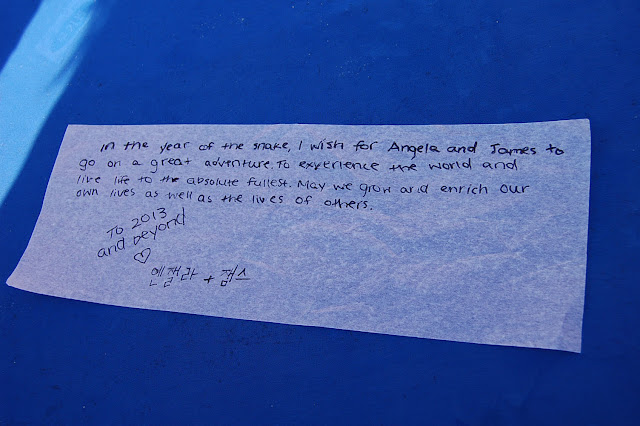 In the year of the snake, I wish for Angela and James to
go on a great adventure. To experience the world and
live life to the absolute fullest. May we grow and enrich our
own lives as well as the lives of others.
To 2013
and beyond
♡
앤젤라 + 쩜스